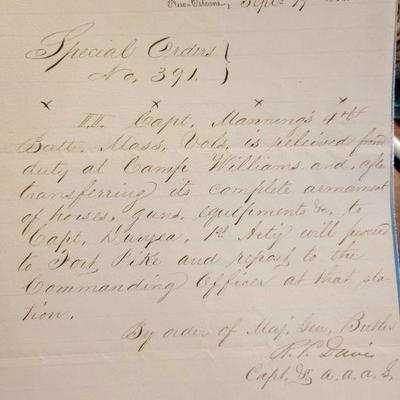 New-Orleans, Sept. 19
Special Orders }
No. 391. }
x x x x
III. Capt. Manning's 4th
Batt. Mass. Vols. is relieved from
duty at Camp Williams and after
transferring its complete armament
of horses, guns, equipments &c. to
Capt. Duryea, 1st Arty will proceed
to Fort Pike and report to the
Commanding Officer at that sta-
tion.
By order of Maj. Gen. Butler
Davis
Capt. & A.A.A.G.